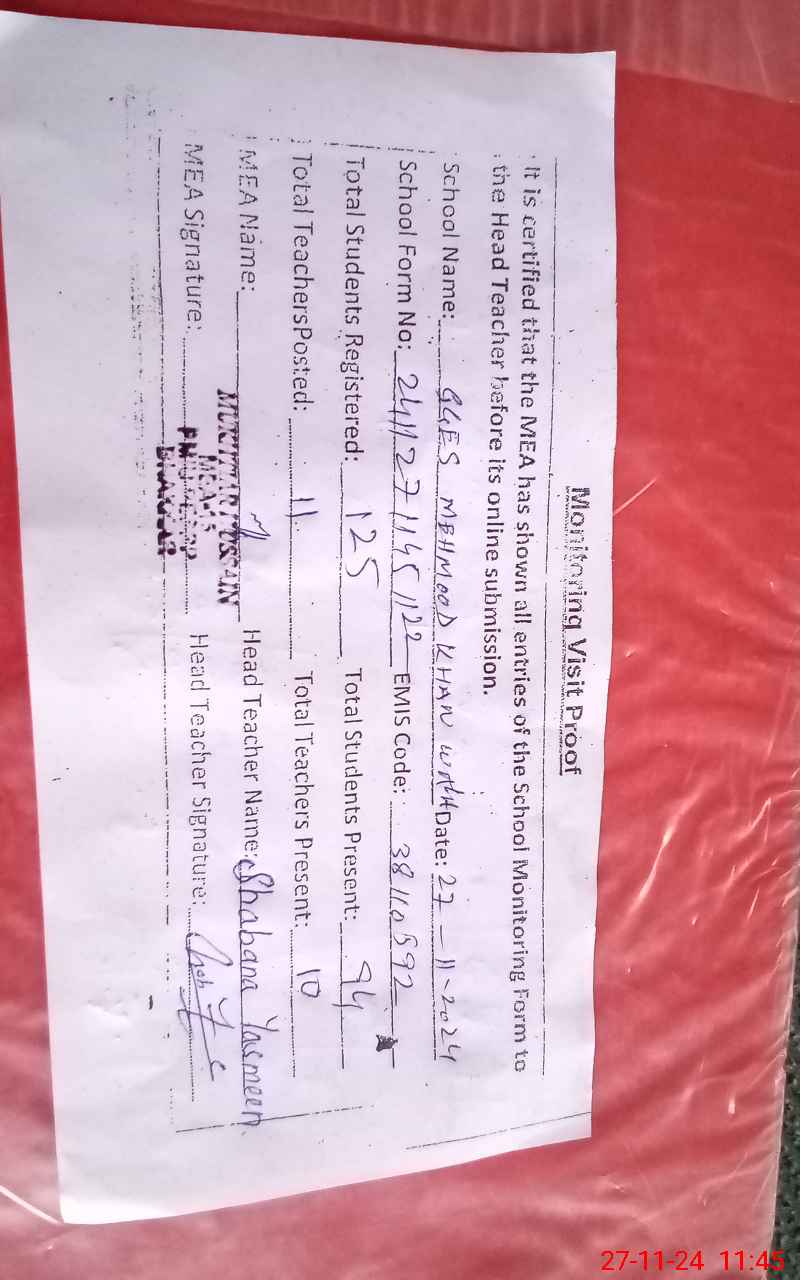 Monitoring Visit Proof
It is certified that the MEA has shown all entries of the School Monitoring Form to
the Head Teacher before its online submission.
School Name: GGES MEHMOOD KHAN Date: 27-11-2024
School Form No: 24112711451122 EMIS Code: 38110592
Total Students Registered: 125 Total Students Present: 94
Total TeachersPosted: 11 Total Teachers Present: 10
MEA Name: HUSSAIN Head Teacher Name: Shabana Yasmeen
MEA Signature: Head Teacher Signature:
MEA-15
BHAKKAR
27-11-24 11:45